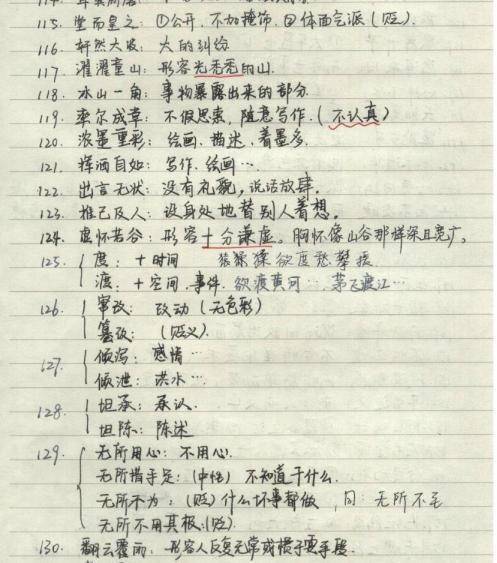 115. 堂而皇之：①公开，不加掩饰 ②体面气派（贬）
116. 轩然大波：大的纠纷
117. 濯濯童山：形容光秃秃的山.
118. 冰山一角：事物暴露出来的部分.
119. 率尔成章：不假思索，随意写作.（不认真）
120. 浓墨重彩：绘画、描述，着墨多.
121. 挥洒自如：写作、绘画…
122. 出言无状：没有礼貌，说话放肆.
123. 推己及人：设身处地替别人着想.
124. 虚怀若谷：形容十分谦虚。胸怀像山谷那样深且宽广。
125. 度：+时间 猿猱欲度愁攀援
渡：+空间、事件. 欲渡黄河 … 渡江…
126. 窜改：改动（无色彩）
篡改：（贬义）.
127. 倾泻：感情…
倾泄：洪水…
128. 坦承：承认.
坦陈：陈述
129. 无所用心：不用心.
无所措手足：（中性）不知道干什么.
无所不为：（贬）什么坏事都做，同：无所不至
无所不用其极.（贬）
130. 翻云覆雨：形容人反复无常或惯于耍手段.